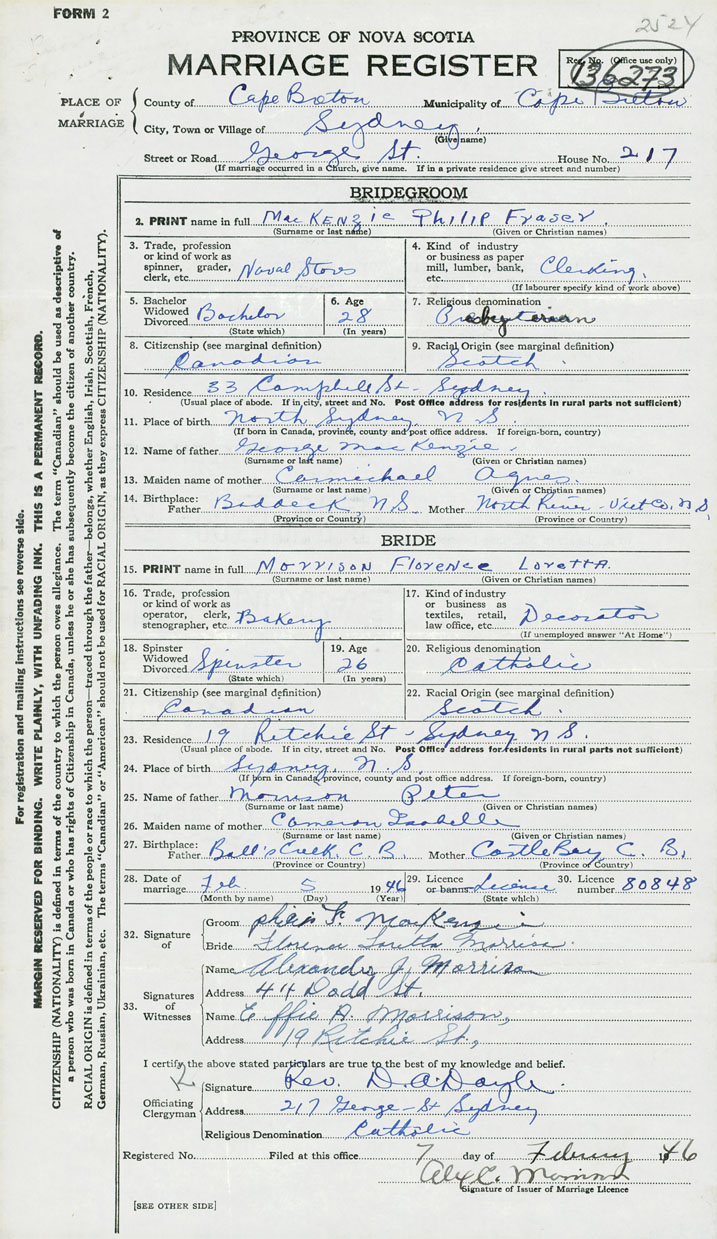 FORM 2
2524
PROVINCE OF NOVA SCOTIA
MARRIAGE REGISTER
Reg. No. (Office use only)
136273
PLACE OF MARRIAGE
County of Cape Breton Municipality of Cape Breton
City, Town or Village of Sydney,
(Give name)
Street or Road George St. House No. 217
(If marriage occurred in a Church, give name. If in a private residence give street and number)
BRIDEGROOM
2. PRINT name in full MacKENZie Philip Fraser.
(Surname or last name) (Given or Christian names)
3. Trade, profession or kind of work as spinner, grader, clerk, etc. Naval Stores
4. Kind of industry or business as paper mill, lumber, bank, etc. Clerking.
(If labourer specify kind of work above)
5. Bachelor Widowed Divorced Bachelor
(State which)
6. Age 28
(In years)
7. Religious denomination Presbyterian
8. Citizenship (see marginal definition) Canadian
9. Racial Origin (see marginal definition) Scotch
10. Residence 33 Campbell St - Sydney.
(Usual place of abode. If in city, street and No. Post Office address for residents in rural parts not sufficient)
11. Place of birth North Sydney N.S.
(If born in Canada, province, county and post office address. If foreign-born, country)
12. Name of father George MacKenzie.
(Surname or last name) (Given or Christian names)
13. Maiden name of mother Carmichael Agnes.
(Surname or last name) (Given or Christian names)
14. Birthplace: Father Baddeck, N.S Mother North River - Vict Co. N.S,
(Province or Country) (Province or Country)
BRIDE
15. PRINT name in full Morrison Florence Loretta.
(Surname or last name) (Given or Christian names)
16. Trade, profession or kind of work as operator, clerk, stenographer, etc. Bakery
17. Kind of industry or business as textiles, retail, law office, etc. Decorator
(If unemployed answer "At Home")
18. Spinster Widowed Divorced Spinster
(State which)
19. Age 26
(In years)
20. Religious denomination Catholic
21. Citizenship (see marginal definition) Canadian
22. Racial Origin (see marginal definition) Scotch.
23. Residence 19 Ritchie St - Sydney N.S.
(Usual place of abode. If in city, street and No. Post Office address for residents in rural parts not sufficient)
24. Place of birth Sydney, N.S,
(If born in Canada, province, county and post office address. If foreign-born, country)
25. Name of father Morrison Peter
(Surname or last name) (Given or Christian names)
26. Maiden name of mother Cameron Isabelle
(Surname or last name) (Given or Christian names)
27. Birthplace: Father Ball's Creek, C.B. Mother Castle Bay C.B.
(Province or Country) (Province or Country)
28. Date of marriage Feb 5 1946
(Month by name) (Day) (Year)
29. Licence or banns License
(State which)
30. Licence number 80848
32. Signature of
Groom Philip F. MacKenzie
Bride Florence Loretta Morrison
33. Signatures of Witnesses
Name Alexander J. Morrison
Address 44 Dodd St.
Name Effie A. Morrison,
Address 19 Ritchie St.,
I certify the above stated particulars are true to the best of my knowledge and belief.
Officiating Clergyman
Signature Rev. D. A. Doyle.
Address 217 George - St Sydney
Religious Denomination Catholic
Registered No. Filed at this office 7 day of February 1946
Signature of Issuer of Marriage Licence
[SEE OTHER SIDE]
For registration and mailing instructions see reverse side.
MARGIN RESERVED FOR BINDING. WRITE PLAINLY, WITH UNFADING INK. THIS IS A PERMANENT RECORD.
CITIZENSHIP (NATIONALITY) is defined in terms of the country to which the person owes allegiance. The term "Canadian" should be used as descriptive of
a person who was born in Canada or who has rights of Citizenship in Canada, unless he or she has subsequently become the citizen of another country.
RACIAL ORIGIN is defined in terms of the people or race to which the person—traced through the father—belongs, whether English, Irish, Scottish, French,
German, Russian, Ukrainian, etc. The terms "Canadian" or "American" should not be used for RACIAL ORIGIN, as they express CITIZENSHIP (NATIONALITY).